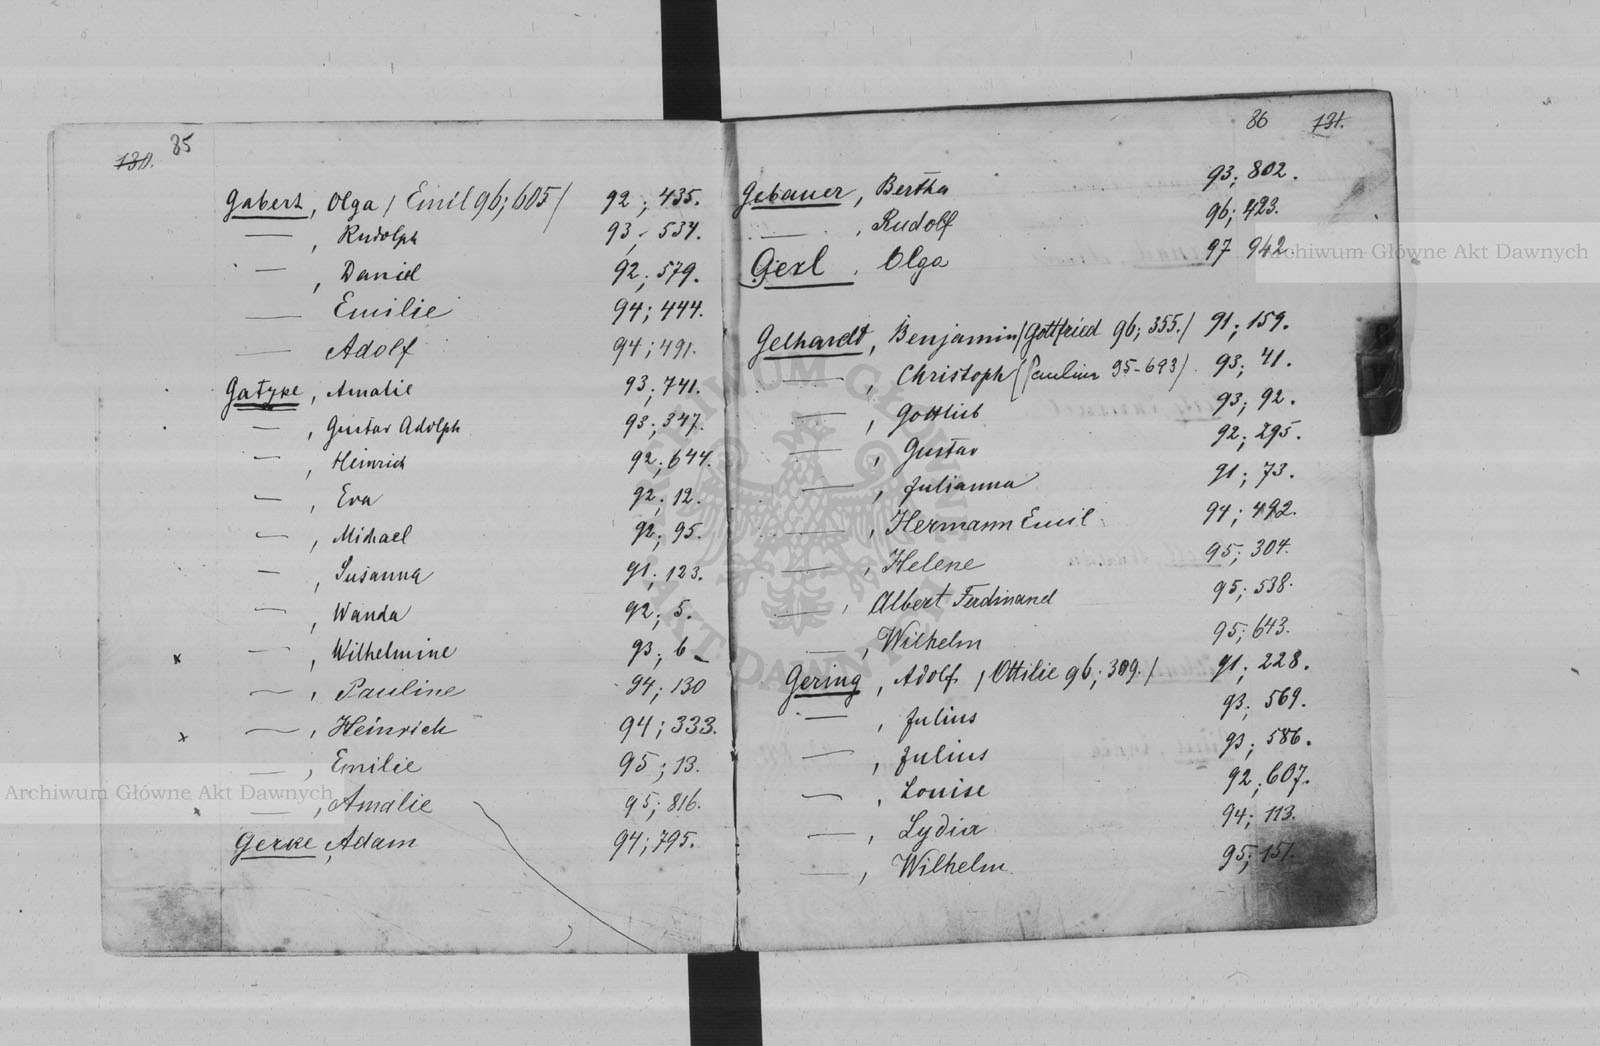 130. 85
Gabert, Olga / Emil 96; 605 / 92; 435.
— , Rudolph 93; 534.
— , Daniel 92; 579.
— Emilie 94; 444.
— Adolf 94; 491.
Gatzke, Amalie 93; 741.
— , Gustav Adolph 93; 347.
— , Heinrich 92; 644.
— , Eva 92; 12.
— , Michael 92; 95.
— , Susanna 91; 123.
— , Wanda 92; 5.
x — , Wilhelmine 93; 6
— , Pauline 94; 130
x — , Heinrich 94; 333.
— , Emilie 95; 13.
— , Amalie 95; 816.
Gerke, Adam 94; 795.
86 131.
Gebauer, Bertha 93; 802.
— , Rudolf 96; 423.
Gerl, Olga 97 942.
Gelhardt, Benjamin / Gottfried 96; 355. / 91; 159.
— , Christoph (Pauline 95-693) 93; 41.
— , Gottlieb 93; 92.
— , Gustav 92; 295.
— , Julianna 91; 73.
— , Hermann Emil 94; 492.
— , Helene 95; 304.
— , Albert Ferdinand 95; 538.
— , Wilhelm 95; 643.
Gering, Adolf / Ottilie 96; 309. / 91; 228.
— , Julius 93; 569.
— , Julius 93; 586.
— , Louise 92; 607.
— , Lydia 94; 113.
— , Wilhelm 95; 151.
Archiwum Główne Akt Dawnych
Archiwum Główne Akt Dawnych
ARCHIWUM GŁÓWNE AKT DAWNYCH